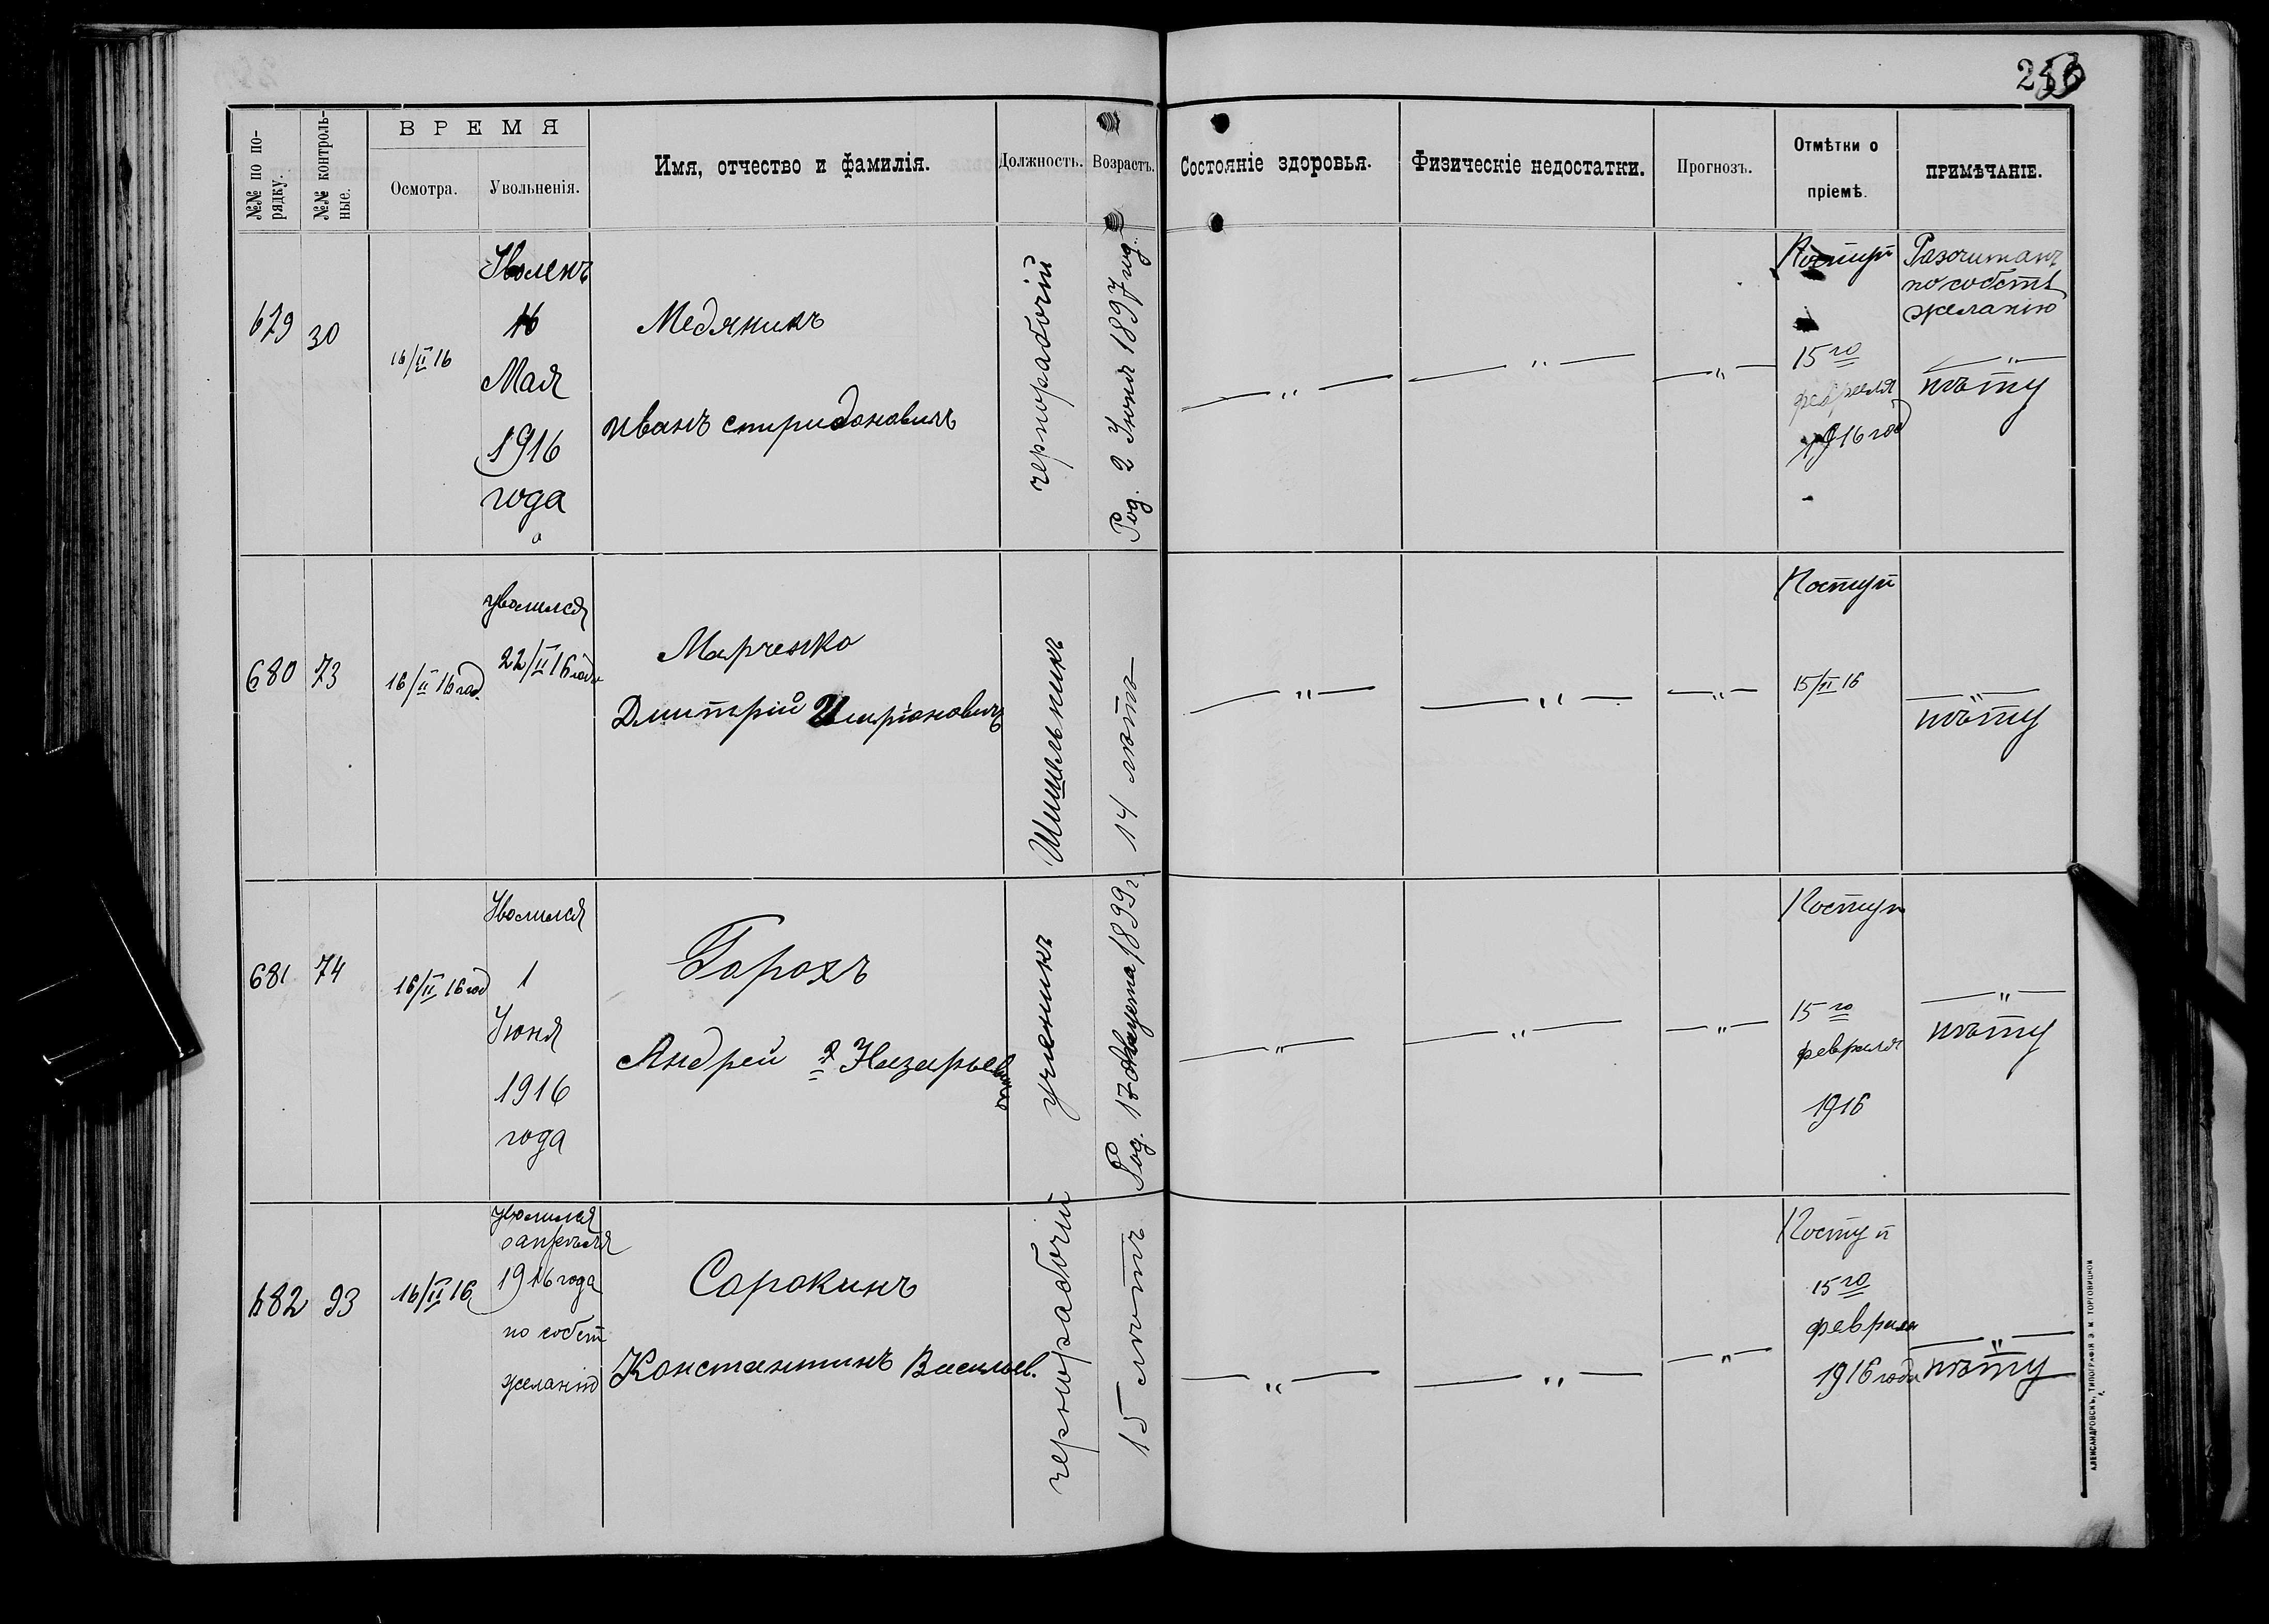 ВРЕМЯ
№№ по по-
рядку.
№№ контроль-
ные.
Осмотра.
Увольненія.
Имя, отчество и фамилія.
Должность.
Возрастъ.
Состояніе здоровья.
Физическіе недостатки.
Прогнозъ.
Отмѣтки о
пріемѣ.
ПРИМѢЧАНІЕ.
679
30
16/II 16
Уволенъ
16
Мая
1916
года
Медяникъ
Иванъ Спиридоновичъ
чернорабочій
Род. 2 Іюня 1897 год.
— " —
— " —
— " —
Поступ
15го
февраля
1916 год
Разочитанъ
по собств
желанію
— " —
нѣту
680
73
16/II 16 год.
уволился
22/II 16 года
Марченко
Дмитрій
Шишельникъ
14 лѣтъ
— " —
— " —
— " —
Поступ
15/II 16
— " —
нѣту
681
74
16/II 16 год
Уволился
1
Іюня
1916
года
Горохъ
Андрей 2 Назарьев
ученикъ
Род. 17 Августа 1899 г.
— " —
— " —
— " —
Поступ
15го
февраля
1916
— " —
нѣту
682
93
16/II 16
уволился
апрѣля
1916 года
по собст
желанію
Сорокинъ
Константинъ Васильев.
чернорабочій
15 лѣтъ
— " —
— " —
— " —
Поступ
15го
февраля
1916 года
— " —
нѣту
АЛЕКСАНДРОВСКЪ, ТИПОГРАФІЯ Э. М. ТОРГОВИЦКОЙ